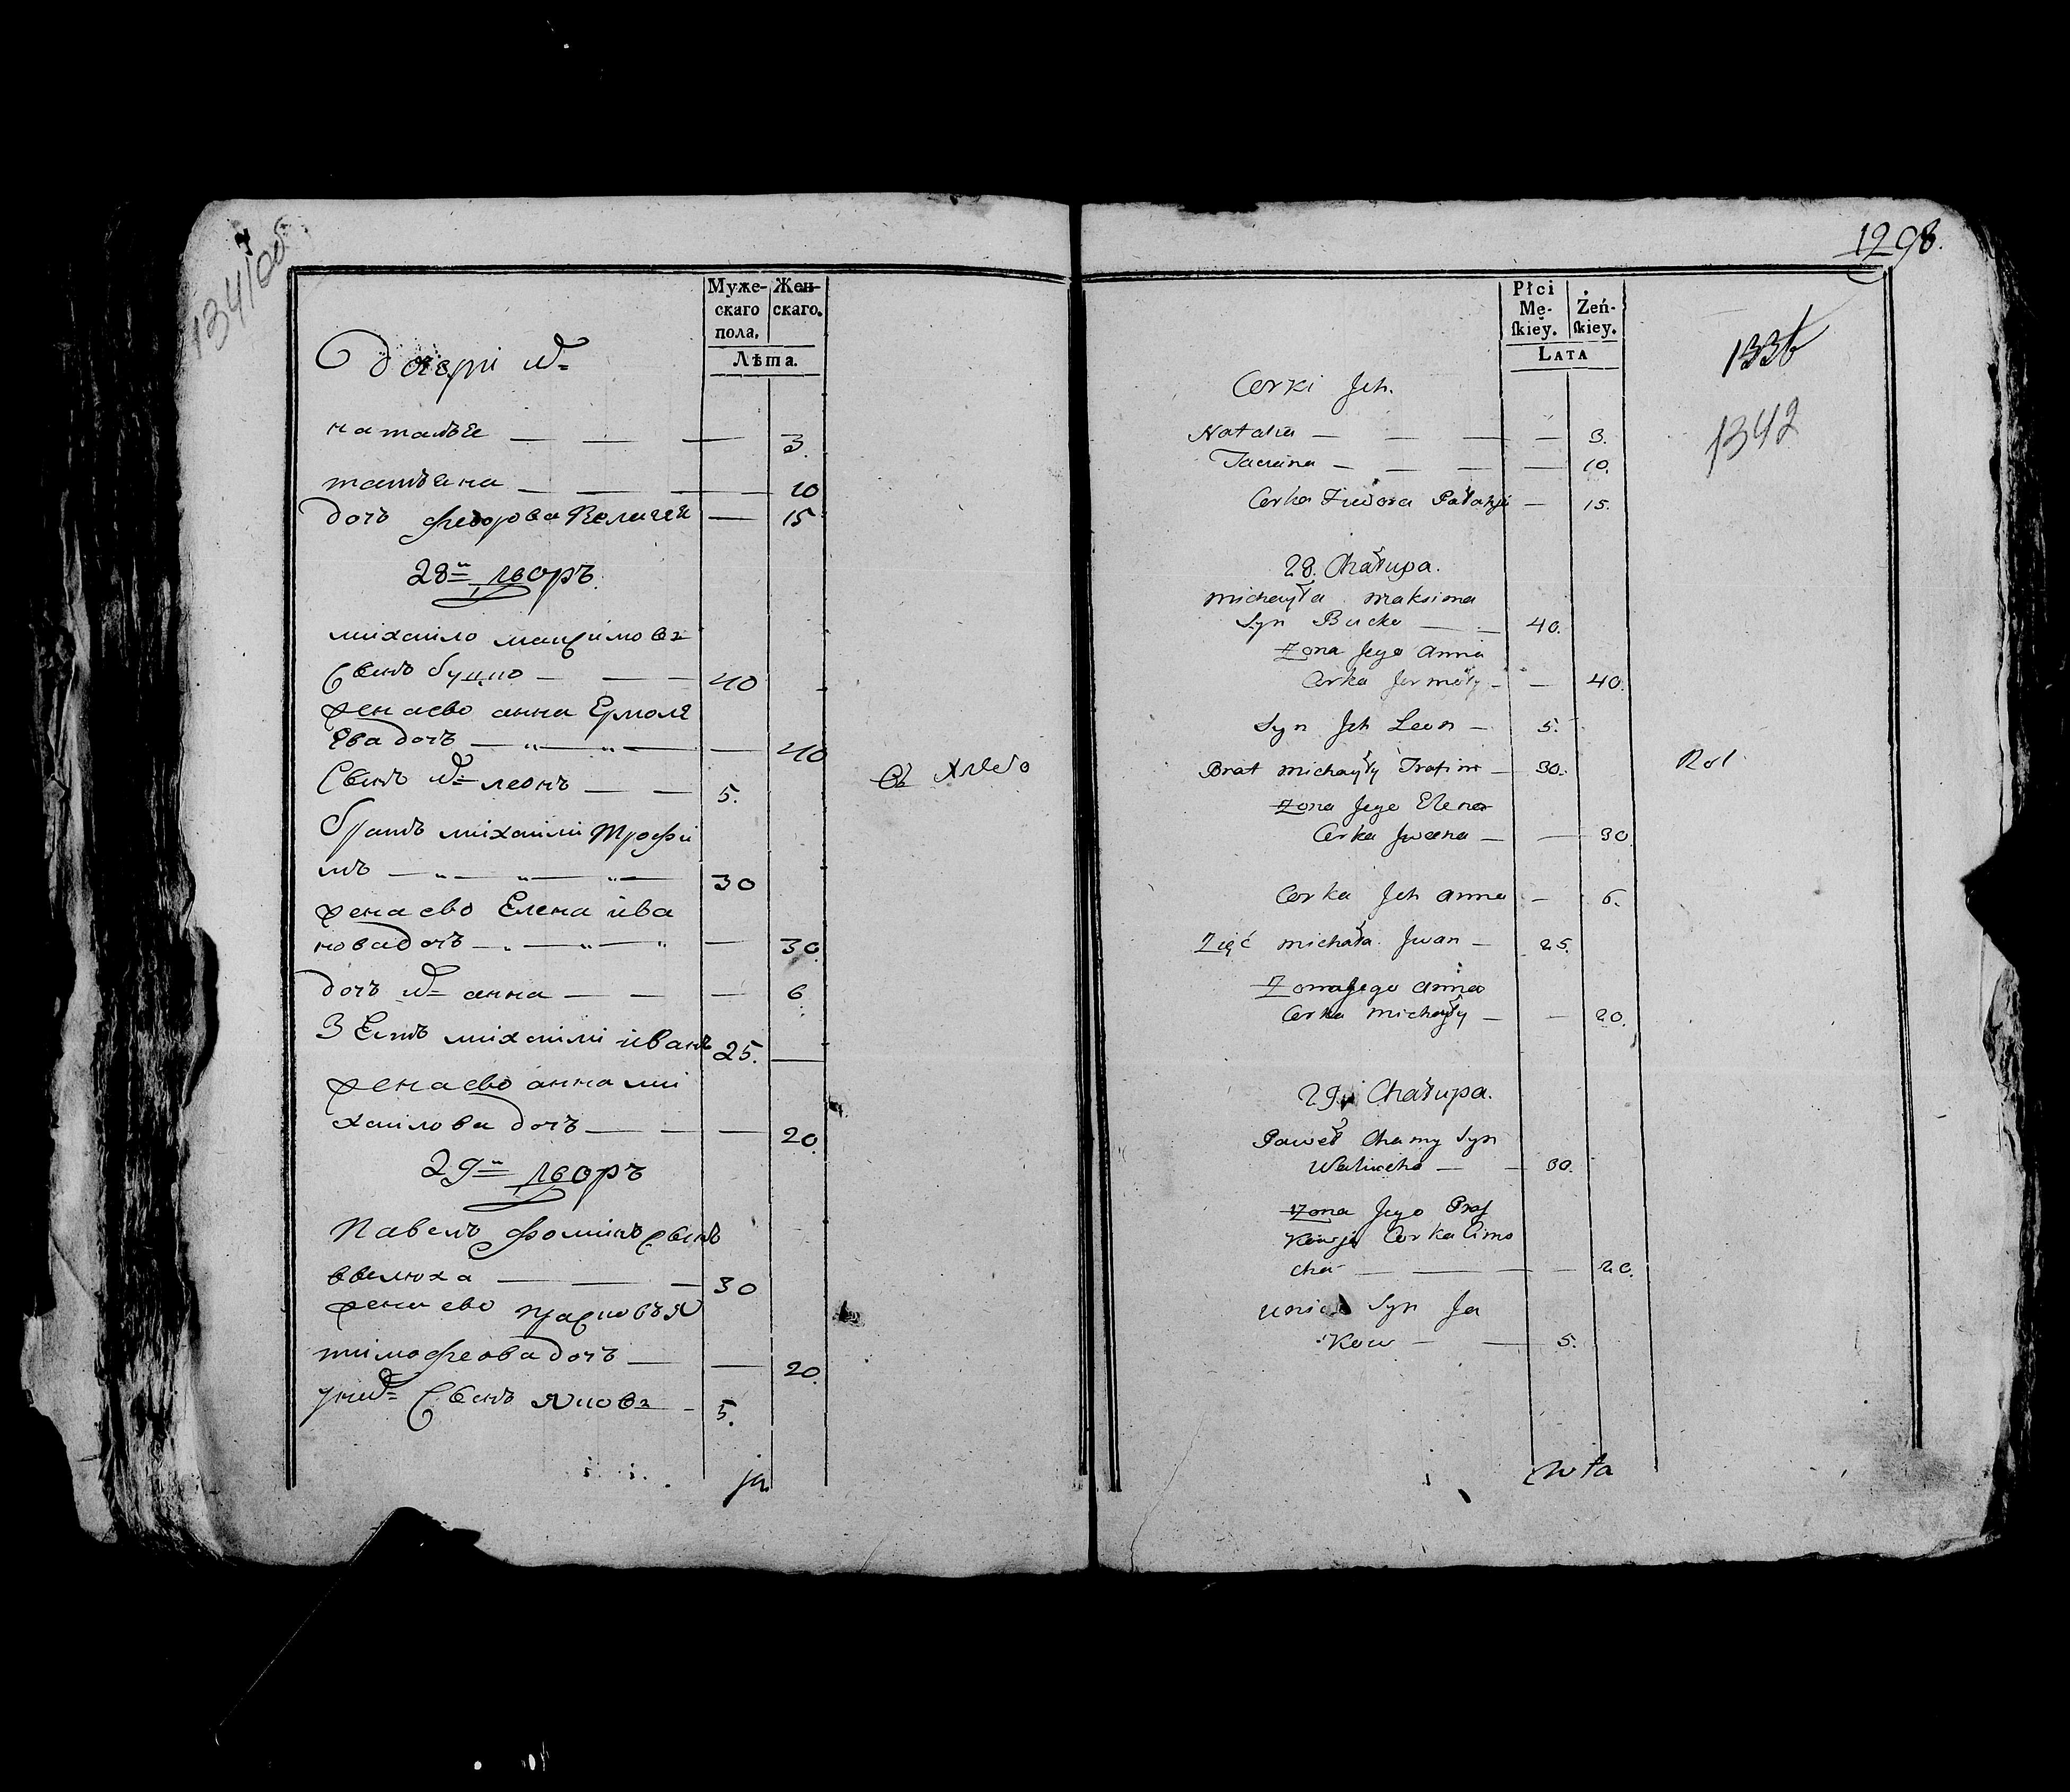 134/об
Муже-
скаго
пола.
Жен-
скаго.
Лѣта.
дочері ихъ
наталья — — — 3.
татьяна — — — 10
дочь федорова — 15
28й дворъ.
міхайло максимовъ
сынъ буцко — — 40
жена ево анна Ермола
Ева дочъ — — — 40
Сынъ ихъ леонъ — — 5.
братъ міхайлі Трофі
мъ — — — 30
жена ево Елена іва
нова дочъ — — — 30.
дочъ ихъ анна — — — 6
Зеть міхайлі іванъ 25. —
жена ево анна мі
хайлова дочъ — — — 20.
29й дворъ
Павелъ фоминъ сынъ
велюха — — — 30
жена ево прасковья
тімофеова дочъ — — 20.
у нихъ Сынъ яковъ - 5.
1298.
Płci
Mę-
ſkiey.
Żeń-
ſkiey.
LATA
1342
Corki Jch.
Natalia — — — — 3.
Taciana — — — — 10.
Corka Fiedora — 15.
28. Chałupa.
Michayła Maksima
Syn Bucko — — 40.
Zona Jego Anna
Corka Jermoły — — 40.
Syn Jch Leon — 5.
Brat Michayły Trofim — 30.
Zona Jego Elena
Corka Jwana — — 30
Corka Jch Anna — 6.
Zięć Michała Jwan — 25.
Zona Jego Anna
Corka Michayły — — 20.
29. Chałupa.
Paweł Chamy Syn
— — 30.
Zona Jego Pras
kowja Corka Cimo
cha — — — — 20.
u nich Syn Ja
kow — — 5.